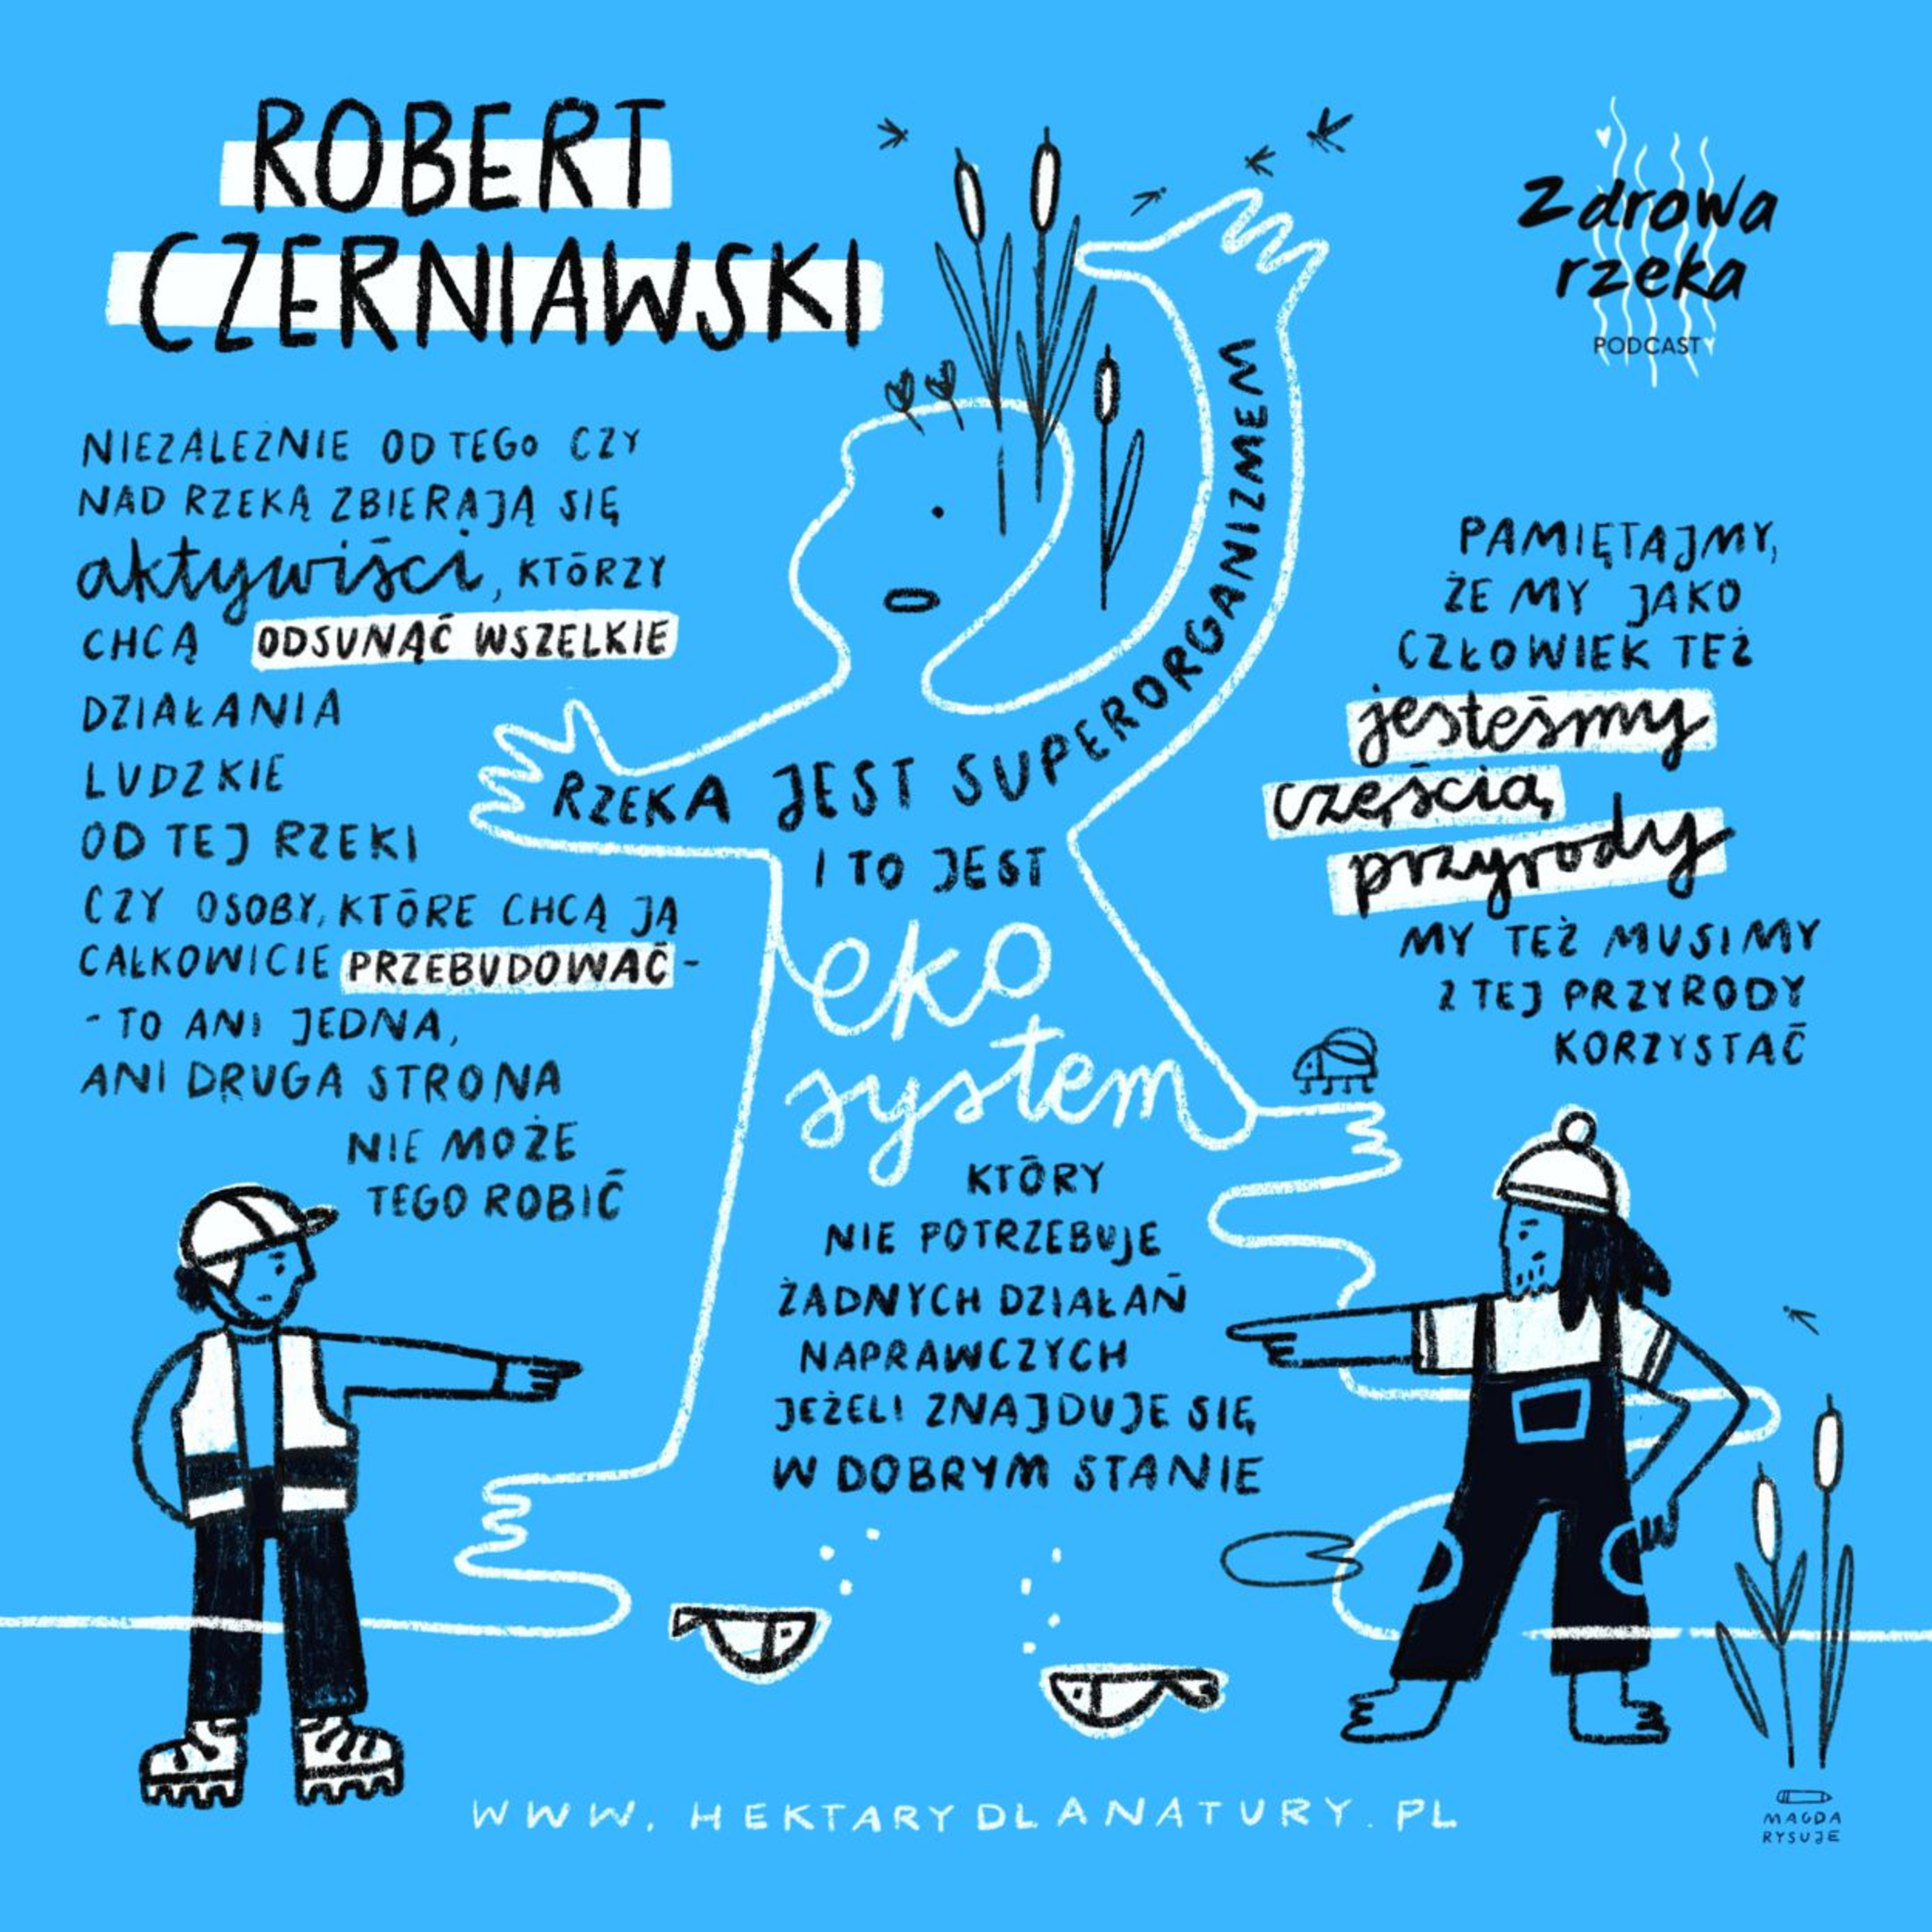 ROBERT
CZERNIAWSKI
Zdrowa
rzeka
PODCAST
NIEZALEŻNIE OD TEGO CZY
NAD RZEKĄ ZBIERAJĄ SIĘ
aktywiści, KTÓRZY
CHCĄ ODSUNĄĆ WSZELKIE
DZIAŁANIA
LUDZKIE
OD TEJ RZEKI
CZY OSOBY, KTÓRE CHCĄ JĄ
CAŁKOWICIE PRZEBUDOWAĆ -
- TO ANI JEDNA,
ANI DRUGA STRONA
NIE MOŻE
TEGO ROBIĆ
RZEKA JEST SUPERORGANIZMEM
I TO JEST
eko
system
KTÓRY
NIE POTRZEBUJE
ŻADNYCH DZIAŁAŃ
NAPRAWCZYCH
JEŻELI ZNAJDUJE SIĘ
W DOBRYM STANIE
PAMIĘTAJMY,
ŻE MY JAKO
CZŁOWIEK TEŻ
jesteśmy
częścią
przyrody
MY TEŻ MUSIMY
Z TEJ PRZYRODY
KORZYSTAĆ
WWW.HEKTARYDLANATURY.PL
MAGDA
RYSUJE